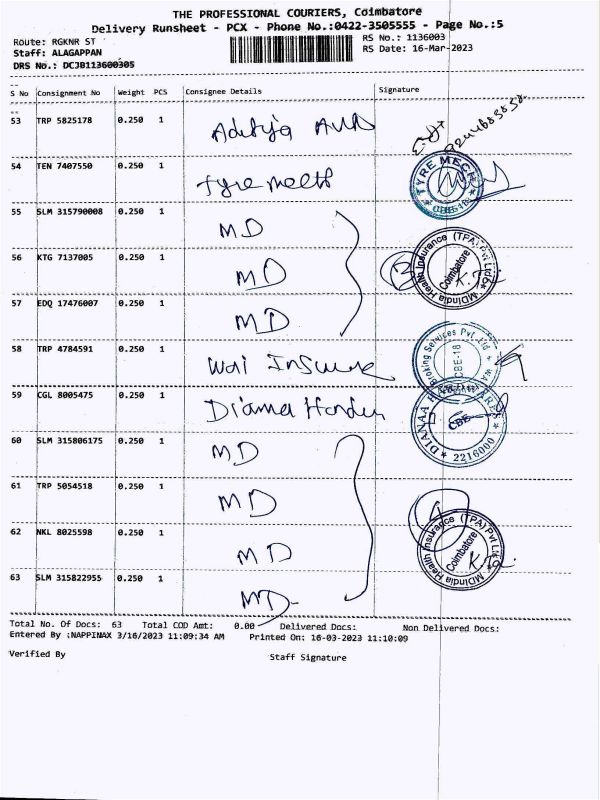 THE PROFESSIONAL COURIERS, Coimbatore
Delivery Runsheet - PCX - Phone No.:0422-3505555 - Page No.:5
Route: RGKNR ST
RS No.: 1136003
Staff: ALAGAPPAN
RS Date: 16-Mar-2023
DRS No.: DCJB113600305
S No Consignment No Weight PCS Consignee Details Signature
53 TRP 5825178 0.250 1 Aditya
54 TEN 7407550 0.250 1 Tyre Mech TYRE MECH
55 SLM 315790008 0.250 1 MD
56 KTG 7137005 0.250 1 MD 3 MDIndia Health Insurance (TPA) Pvt Ltd Coimbatore
57 EDQ 17476007 0.250 1 MD
58 TRP 4784591 0.250 1 Wai Insurance Broking Services Pvt Ltd CBE-18
59 CGL 8005475 0.250 1 DIANAA CBE 2216000
60 SLM 315806175 0.250 1 MD
61 TRP 5054518 0.250 1 MD
62 NKL 8025598 0.250 1 MD 4 MDIndia Health Insurance (TPA) Pvt Ltd Coimbatore
63 SLM 315822955 0.250 1 MD
Total No. Of Docs: 63 Total COD Amt: 0.00 Delivered Docs: Non Delivered Docs:
Entered By :NAPPINAX 3/16/2023 11:09:34 AM Printed On: 16-03-2023 11:10:09
Verified By Staff Signature